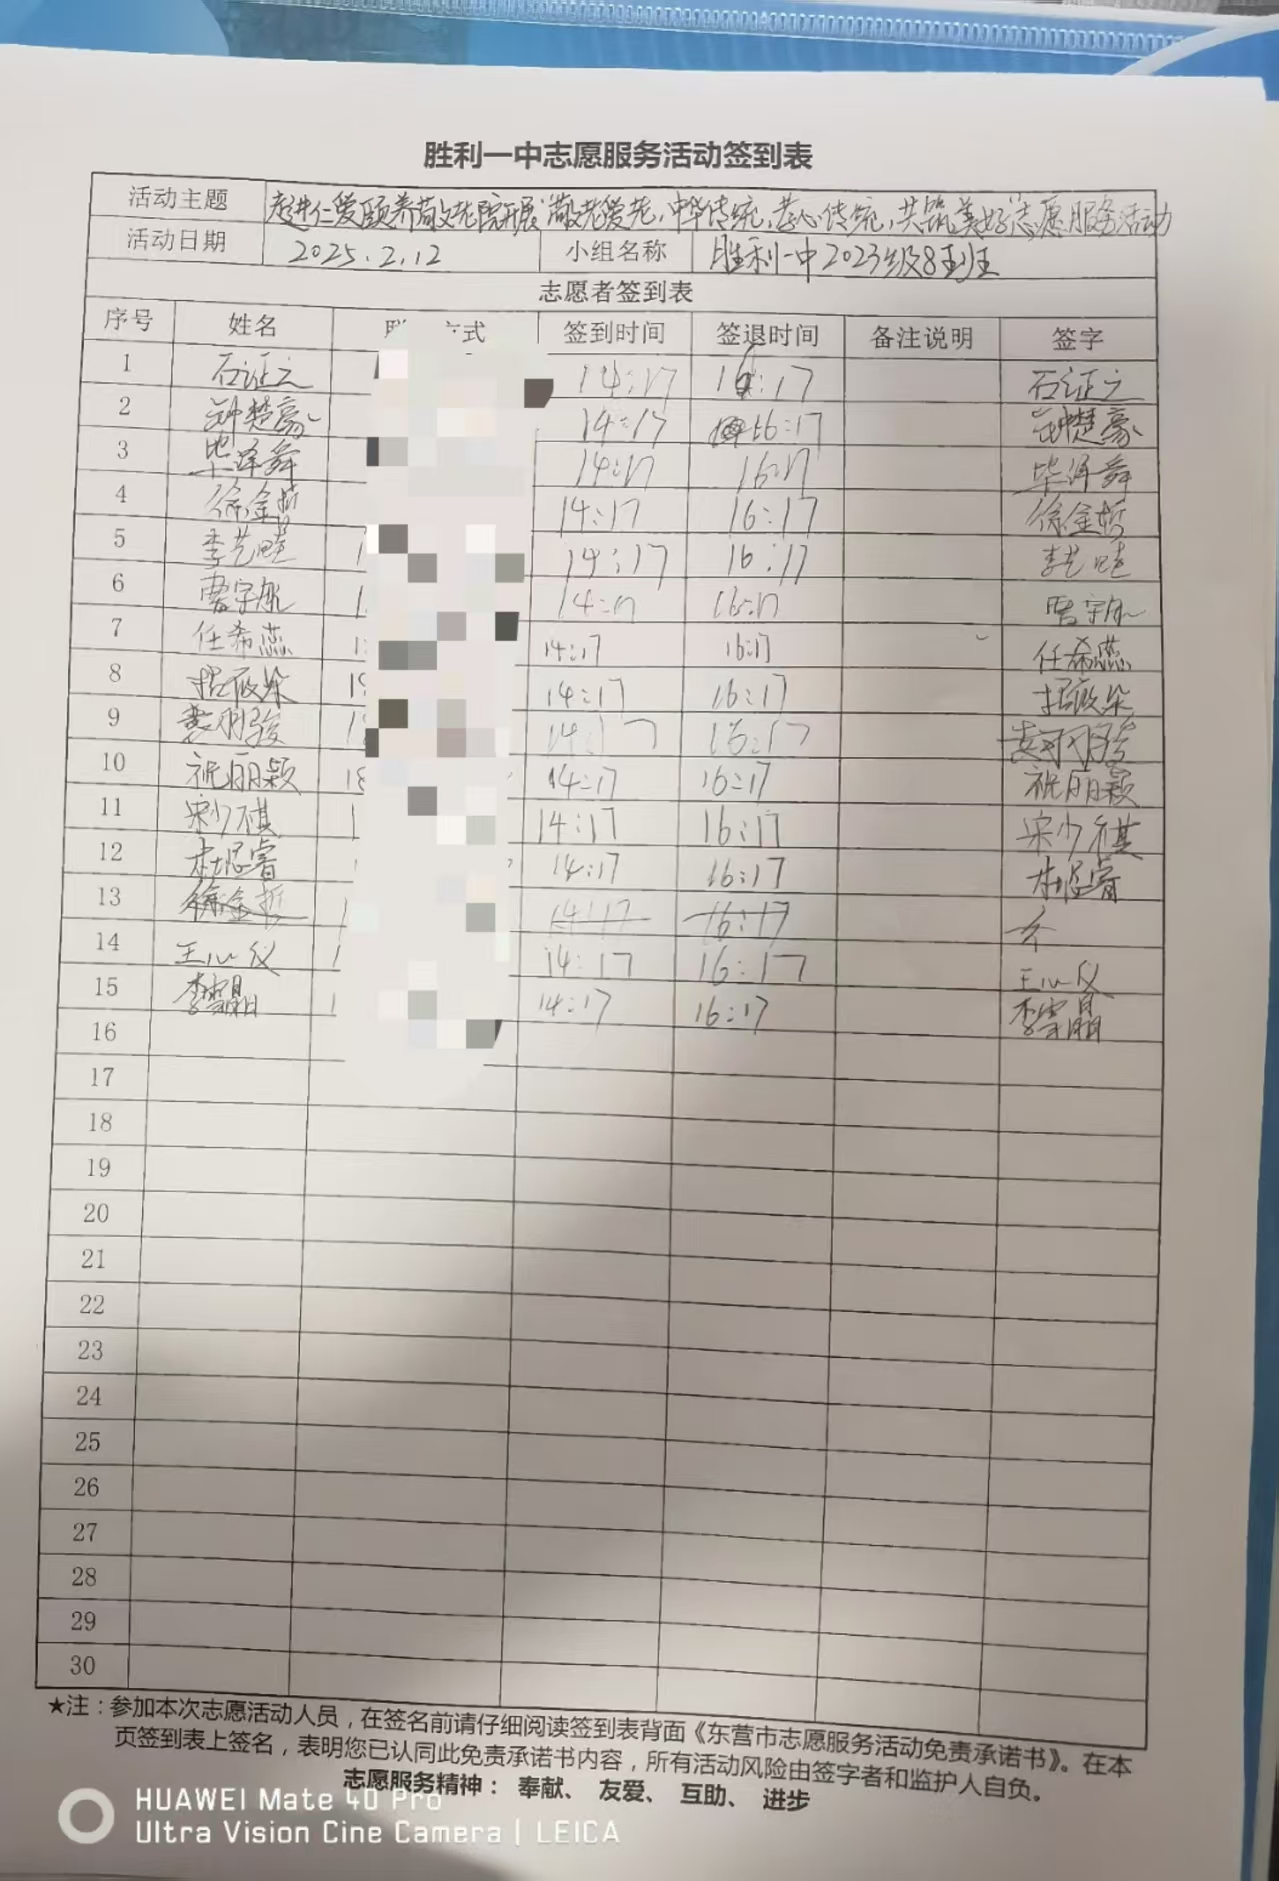 胜利一中志愿服务活动签到表
活动主题 走进仁爱颐养敬老院开展“敬老爱老,中华传统,孝心传统,共筑美好”志愿服务活动
活动日期 2025.2.12 小组名称 胜利一中2023级8班
志愿者签到表
序号 姓名 式 签到时间 签退时间 备注说明 签字
1 石证之 14:17 16:17 石证之
2 钟楚豪 14:17 16:17 钟楚豪
3 毕泽舞 14:17 16:17 毕泽舞
4 徐金哲 14:17 16:17 徐金哲
5 李艺 14:17 16:17 李艺
6 曹宇航 14:17 16:17 曹宇航
7 任希蕊 14:17 16:17 任希蕊
8 14:17 16:17
9 14:17 16:17
10 祝丽颖 18 14:17 16:17 祝丽颖
11 宋少祺 14:17 16:17 宋少祺
12 杜思睿 14:17 16:17 杜思睿
13 徐金哲 14:17 16:17
14 王心仪 14:17 16:17 王心仪
15 李雪晶 14:17 16:17 李雪晶
16
17
18
19
20
21
22
23
24
25
26
27
28
29
30
★注：参加本次志愿活动人员，在签名前请仔细阅读签到表背面《东营市志愿服务活动免责承诺书》。在本
页签到表上签名，表明您已认同此免责承诺书内容，所有活动风险由签字者和监护人自负。
志愿服务精神： 奉献、 友爱、 互助、 进步
HUAWEI Mate 40 Pro
Ultra Vision Cine Camera | LEICA